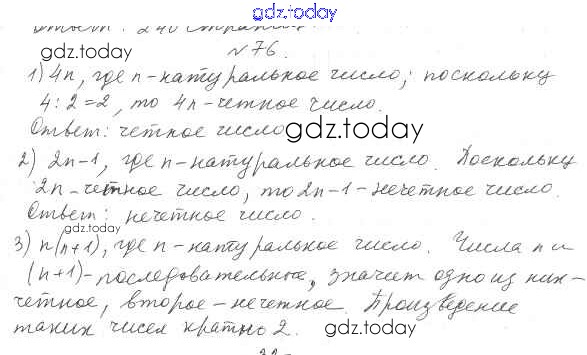 gdz.today
Ответ: 240 страниц
gdz.today
№76.
1) 4n, где n - натуральное число; поскольку
4:2=2, то 4n - четное число.
Ответ: четное число
gdz.today
2) 2n-1, где n - натуральное число. Поскольку
2n - четное число, то 2n-1 - нечетное число.
Ответ: нечетное число.
gdz.today
3) n(n+1), где n - натуральное число. Числа n и
(n+1) - последовательные, значит одно из них -
четное, второе - нечетное. Произведение
таких чисел кратно 2.
gdz.today